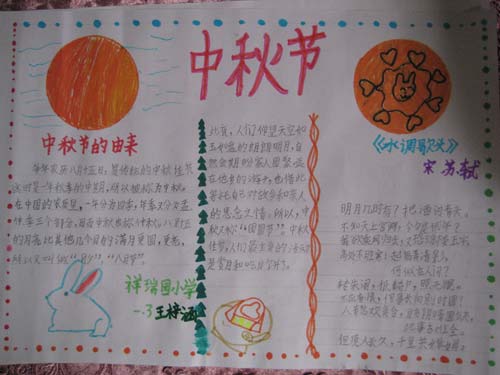 中秋节
中秋节的由来
每年农历八月十五日，是传统的中秋佳节
这时是一年秋季的中期，所以被称为中秋。
在中国的农历里，一年分为四季，每季又分为孟
仲、季三个部分，因而中秋也称仲秋。八月十五
的月亮比其他几个月的满月更圆，更亮，
所以又叫做“月夕”，“八月节”。
祥瑞园小学
一.3
此夜，人们仰望天空如
玉如盘的朗朗明月，自
然会期盼家人团聚。远
在他乡的游子，也借此
寄托自己对故乡和亲人
的思念之情。所以，中
秋又称“团圆节”。中秋
佳节，人们最主要的活动
是赏月和吃月饼了。
《水调歌头》
宋 苏轼
明月几时有？把酒问青天。
不知天上宫阙，今夕是何年？
我欲乘风归去，又恐琼楼玉宇，
高处不胜寒！起舞弄清影，
何似在人间？
转朱阁，低绮户，照无眠。
不应有恨，何事长向别时圆？
人有悲欢离合，月有阴晴圆缺，
此事古难全。
但愿人长久，千里共婵娟。